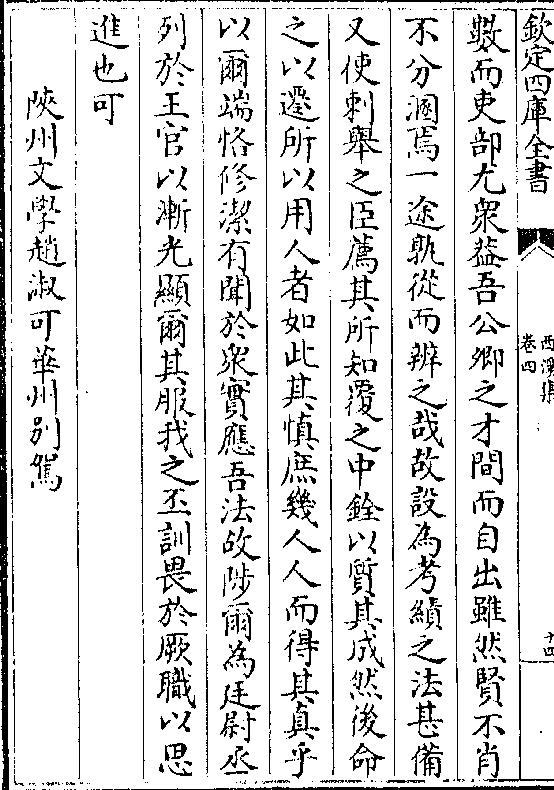 欽定四庫全書
西溪集
卷四
十四
數而吏部尤衆葢吾公卿之才間而自出雖然賢不肖
不分溷焉一途孰從而辨之哉故設為考績之法甚備
又使刺舉之臣薦其所知覆之中銓以質其成然後命
之以遷所以用人者如此其慎庶幾人人而得其真乎
以爾端恪修潔有聞於衆實應吾法故陟爾為廷尉丞
列於王官以漸光顯爾其服我之丕訓畏於厥職以思
進也可
陜州文學趙淑可華州别駕